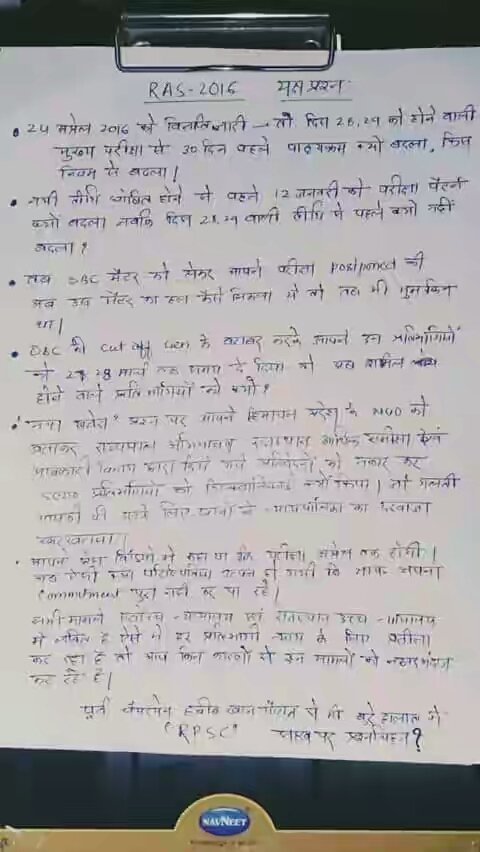 RAS-2016 यक्ष प्रश्न
24 अप्रैल 2016 को विज्ञप्ति जारी तो दिस 28,29 को होने वाली
मुख्य परीक्षा से 30 दिन पहले पाठ्यक्रम क्यों बदला, किस
नियम से बदला।
नयी तिथि घोषित होने से पहले 12 जनवरी को परीक्षा पैटर्न
क्यों बदला जबकि दिस 28,29 वाली तिथि से पहले क्यों नहीं
बदला?
तब SBC मैटर को लेकर आपने परीक्षा Postponed की
अब उस मैटर का हल कैसे निकला ये तो तब भी मुमकिन
था।
OBC की cut off Gen के बराबर करके आपने उन प्रतिभागियों
को 27,28 मार्च तक समय दे दिया तो अब शामिल
होने वाले प्रतिभागियों को क्यों?
प्रश्न पर आपने हिमाचल प्रदेश के NGO को
बताकर राजस्थान आर्थिक समीक्षा एवं
विभाग द्वारा किये गये को नकार कर
प्रतिभागियों को क्यों किया। तो गलती
आपकी थी न्यायपालिका का दरवाजा
खटखटाया।
आपने कहा था कि परीक्षा अप्रैल तक होगी।
अब ऐसी क्या परिस्थितियां उत्पन्न हो गयी कि आप अपना
Commitment पूरा नहीं कर पा रहे।
सभी मामले सर्वोच्च न्यायालय एवं राजस्थान उच्च न्यायालय
में लंबित है ऐसे में हर प्रतिभागी न्याय के लिए प्रतीक्षा
कर रहा है तो आप किन कारणों से इन मामलों को नजरअंदाज
कर रहे हैं।
पूर्व चैयरमेन हबीब खान गौराण से भी बुरे हालात में
"RPSC" साख पर प्रश्नचिह्न?
NAVNEET